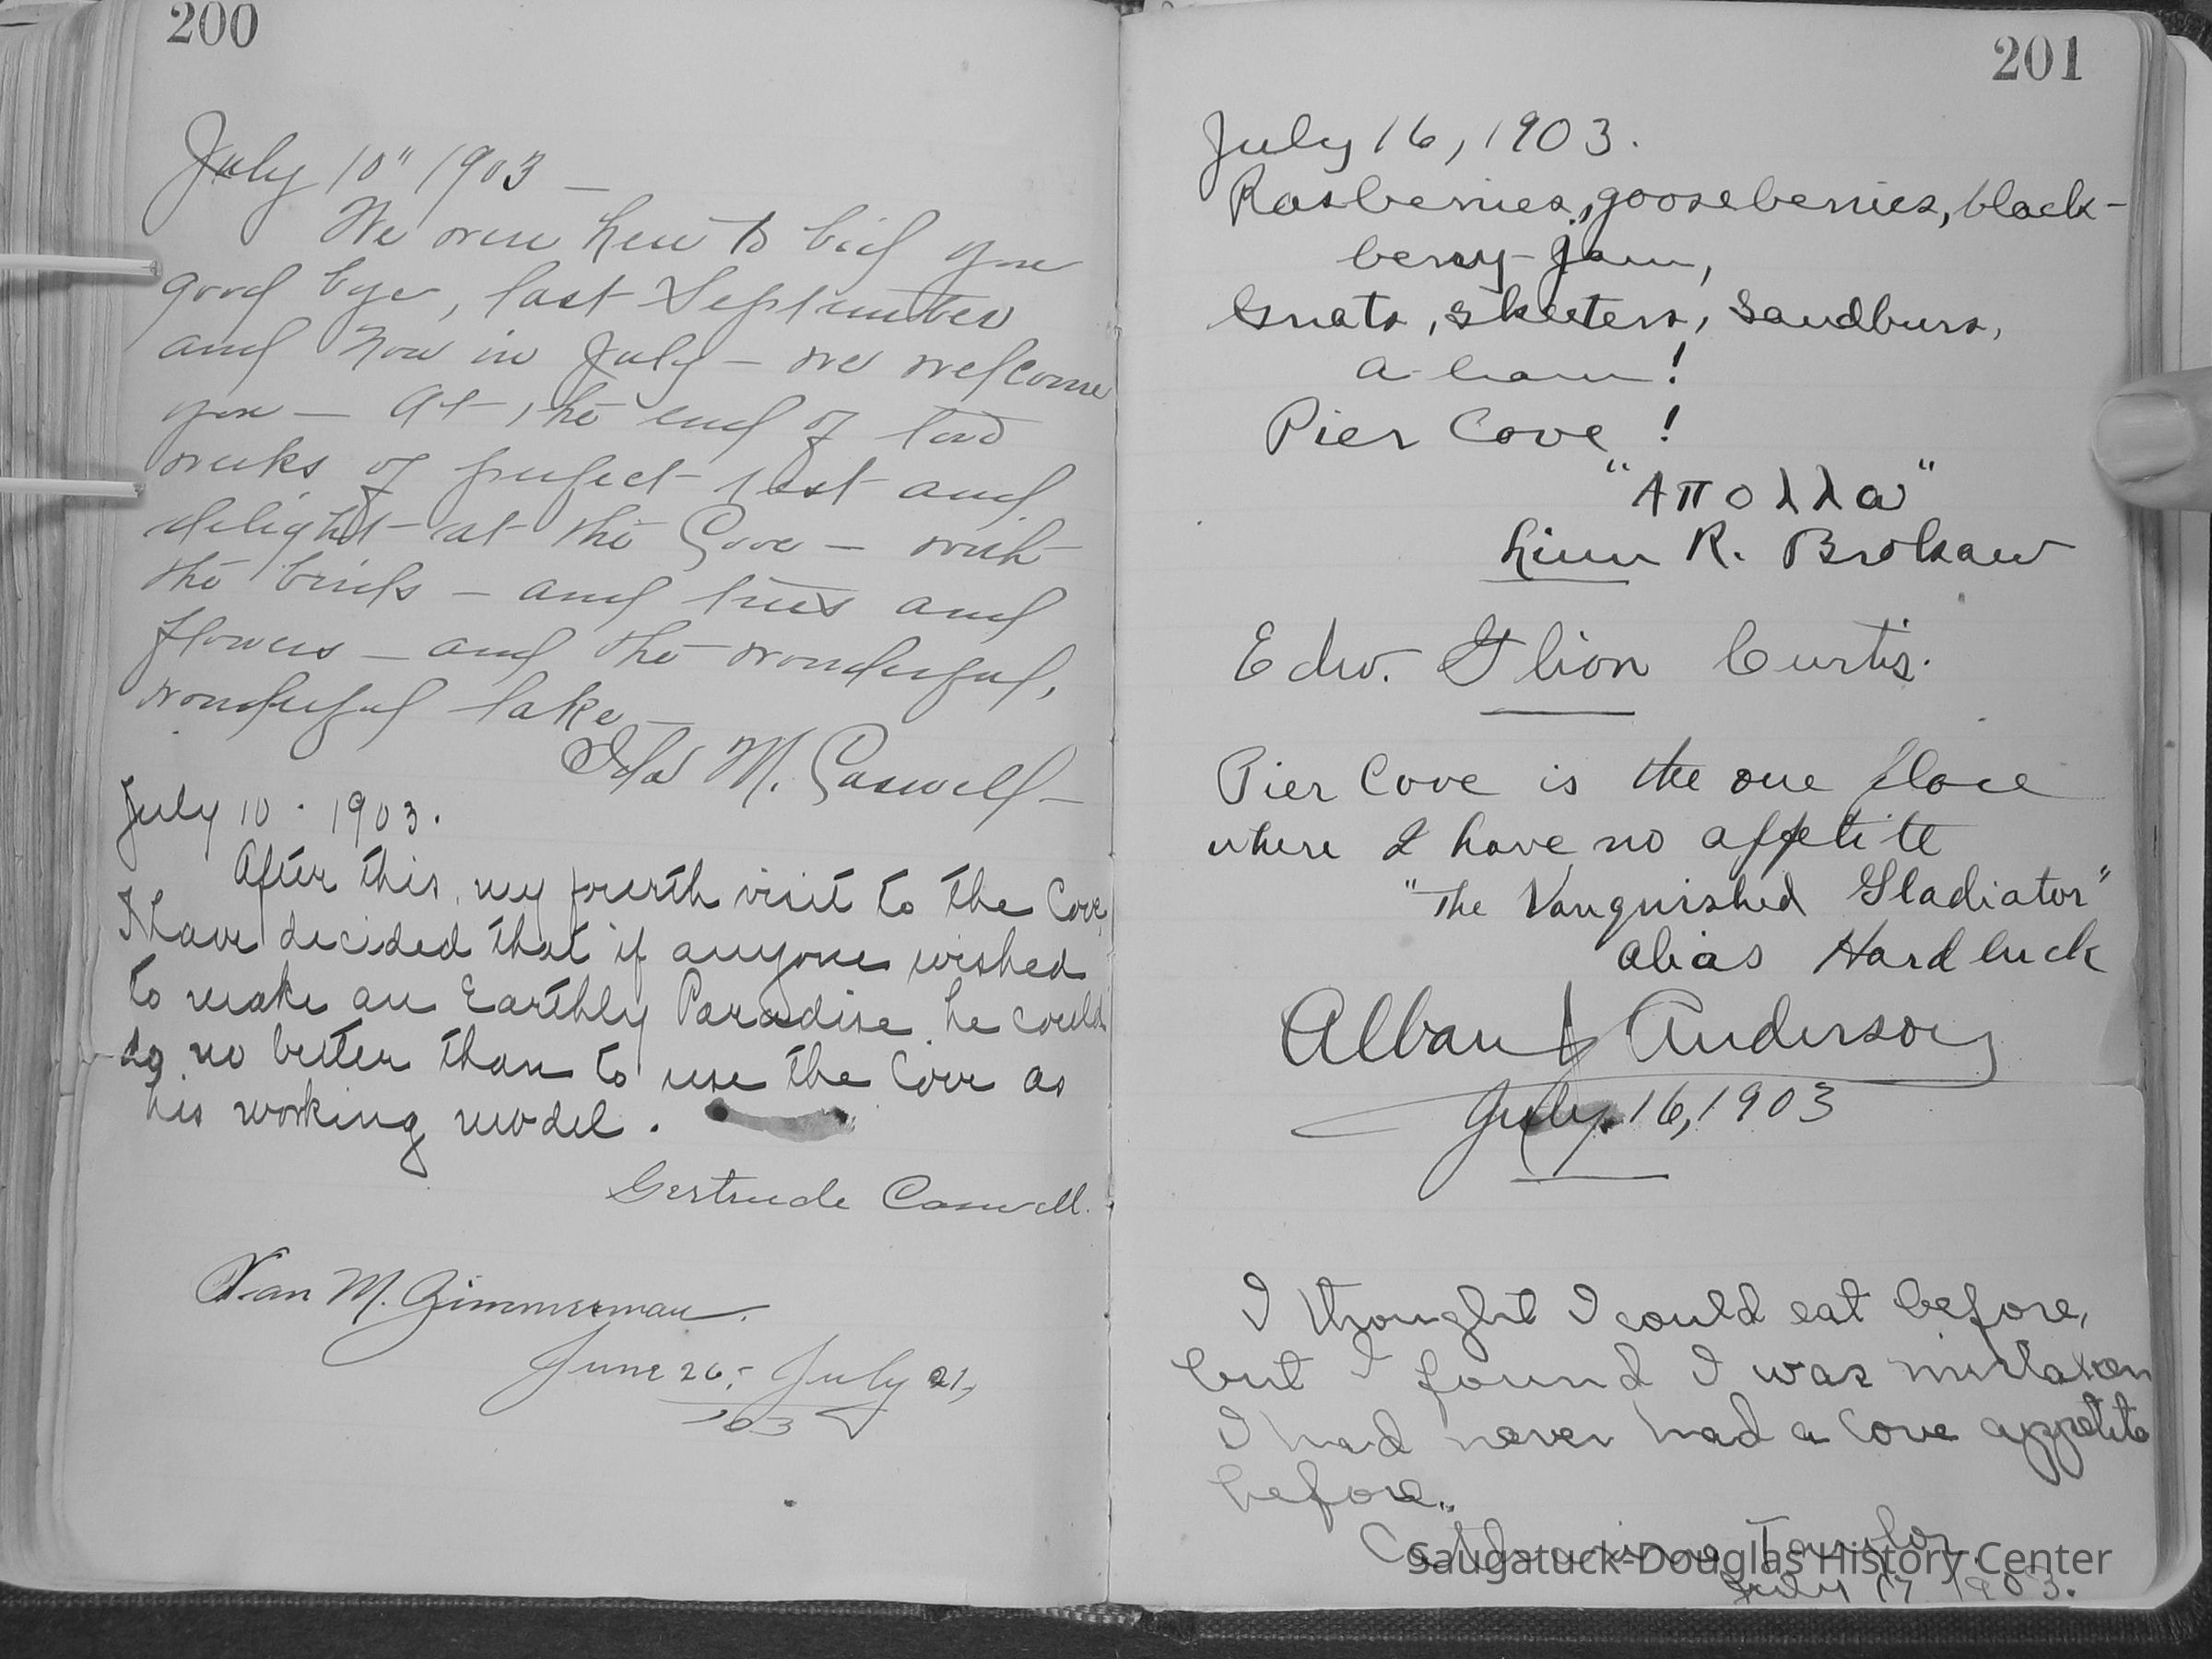 200
July 10" 1903 —
We were here to bid you
good bye, last September
and now in July — we welcome
you — At the end of two
weeks of perfect rest and
delight at the Cove — with
the birds — and trees and
flowers — and the wonderful,
wonderful lake —
Ida M. Caswell —
July 10 . 1903.
After this, my fourth visit to the Cove,
I have decided that if anyone wished
to make an Earthly Paradise he could
do no better than to use the Cove as
his working model.
Gertrude Caswell.
M. Zimmerman.
June 26, - July 21,
'03
201
July 16, 1903.
Rasberries, gooseberries, black-
berry-jam,
Gnats, skeeters, sandburs,
a-ham!
Pier Cove!
"Απολλα"
Linn R. Brokaw
Edw. Glion Curtis.
Pier Cove is the one place
where I have no appetite
"The Vanquished Gladiator"
alias Hard luck
Alban J Anderson
July 16, 1903
I thought I could eat before,
but I found I was mistaken
I had never had a Cove appetite
before.
Catharine Taylor.
July 17 1903.
Saugatuck-Douglas History Center